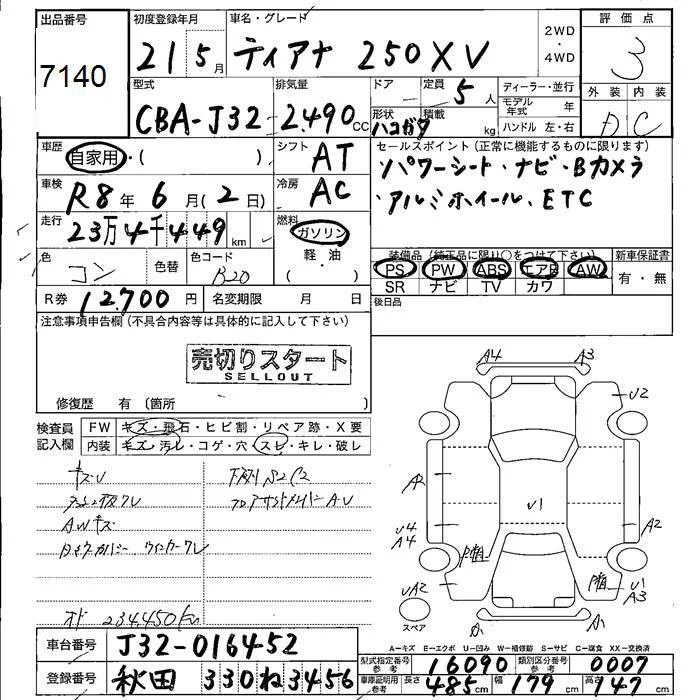 出品番号 7140
初度登録年月 21年5月
車名・グレード ティアナ 250XV
2WD・4WD
評価点 3
型式 CBA-J32
排気量 2.490cc
ドア
定員 5人
形状 ハコガタ
積載 kg
ディーラー・並行
モデル年式 年
ハンドル 左・右
外装 内装 C
車歴 自家用・( )
シフト AT
セールスポイント(正常に機能するものに限ります)
パワーシート・ナビ・Bカメラ
・アルミホイール、ETC
車検 R8年6月(2日)
冷房 AC
走行 23万4千449km
燃料 ガソリン 軽・油 ( )
色 コン
色替
色コード B20
装備品(純正品に限り○をつけて下さい)
PS PW ABS エアB AW
SR ナビ TV カワ
新車保証書 有・無
R券 12.700円
名変期限 月 日
後日品
注意事項申告欄(不具合内容等は具体的に記入して下さい)
売切りスタート
SELLOUT
修復歴 有(箇所 )
検査員記入欄
FW キズ・飛石・ヒビ割・リペア跡・X要
内装 キズ・汚レ・コゲ・穴・スレ・キレ・破レ
キズU
AWキズ
オド 234.450km
A4 A3
U2
A2
U1
U4
A4
A2
UA2
U1
A3
スペア
A−キズ E−エクボ U−凹み W−補修跡 S−サビ C−腐食 XX−交換済
車台番号 J32-016452
登録番号 秋田 330ね3456
型式指定番号 参考 16090
類別区分番号 参考 0007
車庫証明用 参考 長さ 485cm 幅 179cm 高さ 147cm